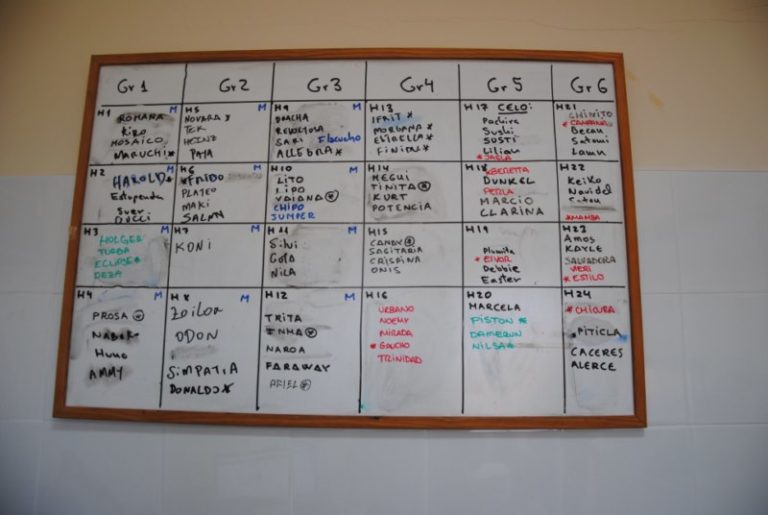 Gr 1 Gr 2 Gr 3 Gr 4 Gr 5 Gr 6
H1 M
ROMANA
Kiro
MOSAICO
MARUCHI *
H5 M
NOVARA
TEK
HEINZ
PAYA
H9 M
DRACHA
REVOLTOSA
SARI Ebcucho
ALLEGRA *
H13
IFRIT *
MORGANA *
ESTRELLA *
FINITA *
H17 CELO:
Pachira
Sushi
SUSTI
Lilian
* JARLA
H21
CHINITO
* CAMPANA
Becau
Satomi
Lamu
H2 M
HAROLD *
Estopenda
Suevi
DUCCI
H6
* FRIDO
PLATEO
MAKI
SALMA
H10 M
LITO
LIPO
VAIANA *
CHIPO
JUMPER
H14
MEGUI
TINITA *
KURT
POTENCIA
H18
* BERETTA
DUNKEL
PERLA
MARCIO
CLARINA
H22
KEIKO
Navidel
MAMBA
H3 M
HOLGER
TURBA
ECLIPSE *
DEZA
H7
KONI
H11 M
Silvi
Gofa
NILA
H15
CANDY *
SAGITARIA
CRISPINA
ONIS
H19
Plumita
* EIVOR
Debbie
Easter
H23
AMOS
KAYLE
SALVADORA
VERI
* ESTILO
H4 M
PROSA *
NABOR
HUKO
AMMY
H8 M
Zoilon
ODON
SIMPATIA
DONALDO *
H12 M
TRITA
INMA *
NAROA
FARAWAY
ARIEL *
H16
URBANO
NOEMY
MIRADA
* GAUCHO
TRINIDAD
H20
MARCELA
PISTON *
DAMERUN
NILSA *
H24
* CHICURA
PITICLA
CACERES
ALERCE